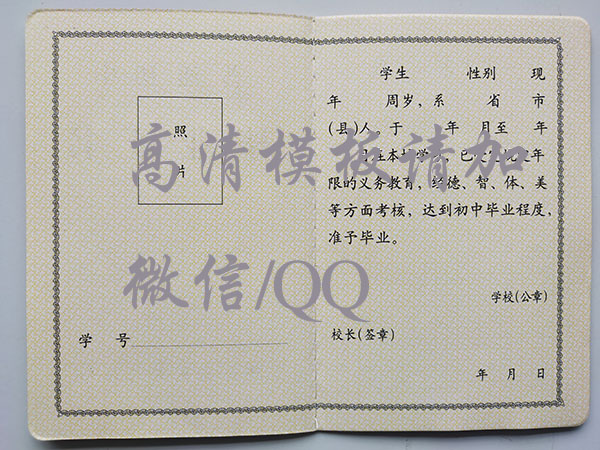 照
片
学 号
学生 性别 现
年 周岁，系 省 市
(县)人。于 年 月至 年
限的义务教育，经德、智、体、美
等方面考核，达到初中毕业程度，
准予毕业。
学校(公章)
校长(签章)
年 月 日
高清模板请加
微信/QQ